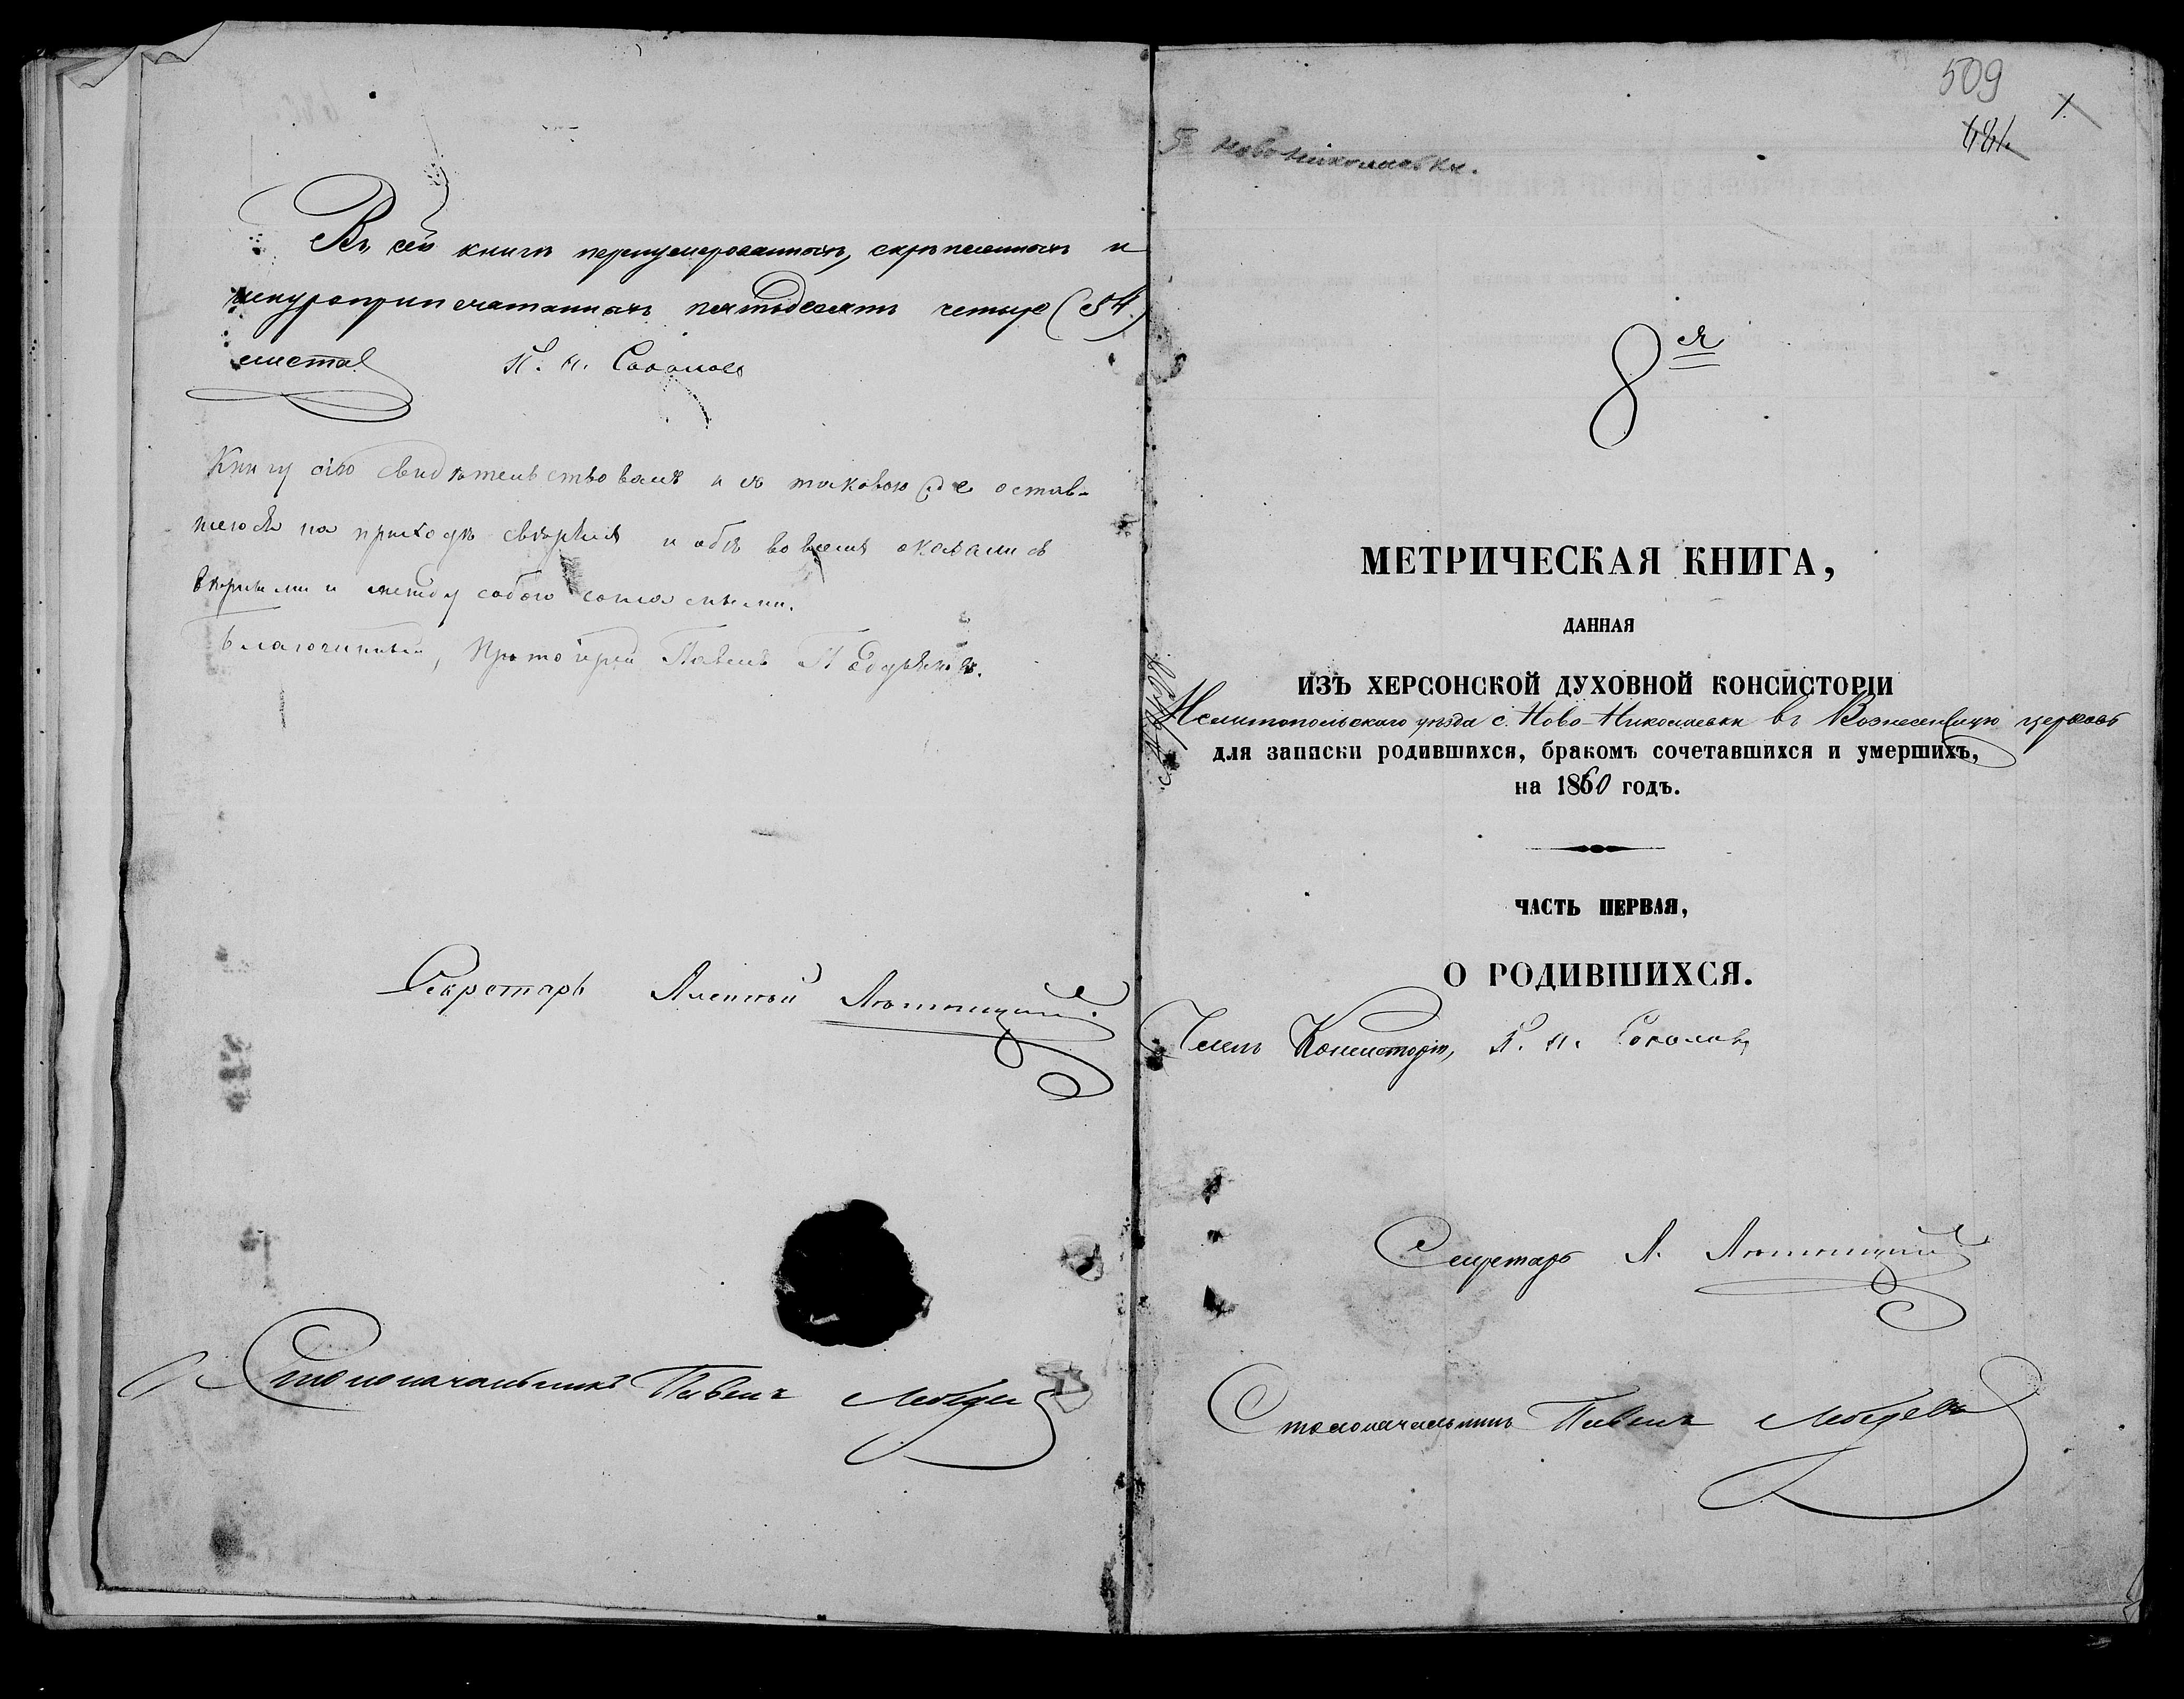 Въ сей книгѣ перенумерованныхъ, скрѣпленныхъ и
шнуроприпечатанныхъ пятьдесятъ четыре (54.)
листа П. н. Соколовъ
Книгу сію свидѣтельствовалъ и съ таковою же остав-
шеюся на приходѣ свѣрялъ и обѣ во всемъ оказались
вѣрными и между собою согласными.
Благочинный, Протоіерей Павелъ
Секретарь
Столоначальникъ Павелъ Лебедев
509
1.
481.
5 Новониколаевки.
8я
МЕТРИЧЕСКАЯ КНИГА,
ДАННАЯ
ИЗЪ ХЕРСОНСКОЙ ДУХОВНОЙ КОНСИСТОРІИ
Мелитопольскаго уѣзда с. Ново-Николаевки въ Вознесенскую церковь
для записки родившихся, бракомъ сочетавшихся и умершихъ,
на 1860 годъ.
ЧАСТЬ ПЕРВАЯ,
О РОДИВШИХСЯ.
Членъ Консисторіи, П. н. Соколовъ
Секретарь А.
Столоначальникъ Павелъ Лебедевъ